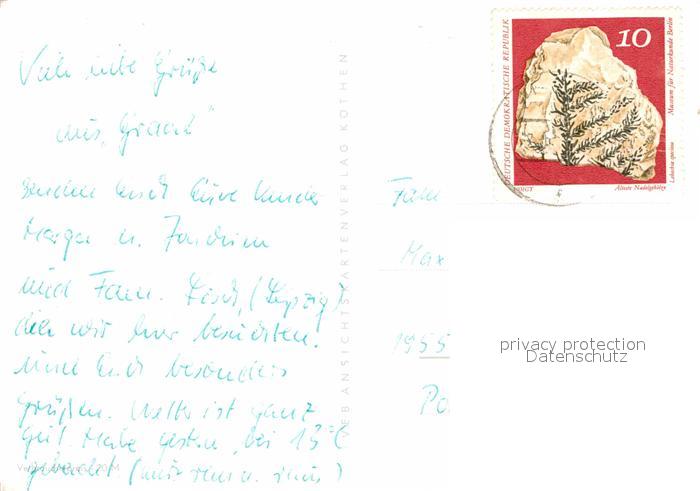 Viele liebe Grüße
aus „Graal"
senden Euch Eure Kinder
Marga u. Joachim
und Fam. (Leipzig)
die wir hier besuchten.
und Euch besonders
grüßen. Wetter ist ganz
gut. Habe gestern bei 15°C
gebadet (nur rein u. raus)
VEB ANSICHTSKARTENVERLAG KÖTHEN
Fam
Max
1955
Po
DEUTSCHE DEMOKRATISCHE REPUBLIK
10
Museum für Naturkunde Berlin
Lebachia speciosa
VOIGT
Älteste Nadelgehölze
privacy protection
Datenschutz